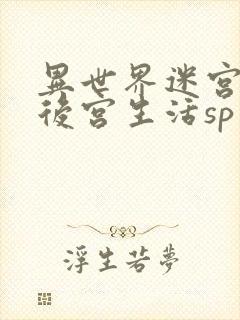 異世界迷宮
後宮生活sp
浮生若夢